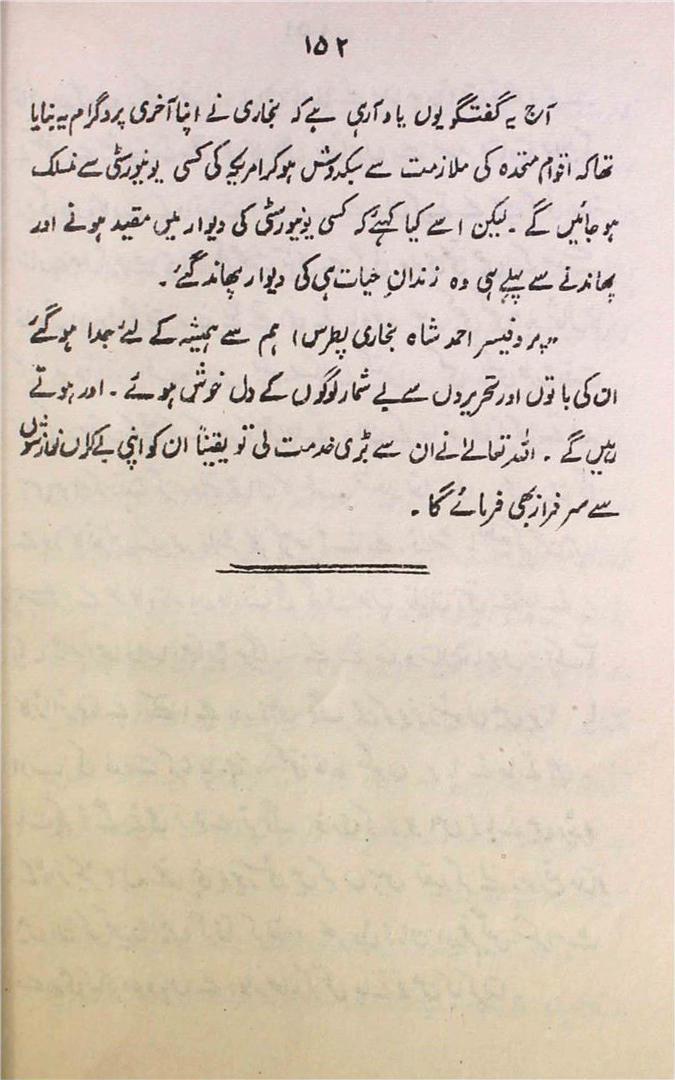 ۱۵۲
آج یہ گفتگو یوں یاد آرہی ہے کہ بخاری نے اپنا آخری پروگرام یہ بنایا
تھا کہ اقوام متحدہ کی ملازمت سے سبکدوش ہو کر امریکہ کی کسی یونیورسٹی سے منسلک
ہو جائیں گے ۔ لیکن اسے کیا کہئے کہ کسی یونیورسٹی کی دیوار میں مقید ہونے اور
پھاندنے سے پہلے ہی وہ زندانِ حیات ہی کی دیوار پھاند گئے ۔
”پروفیسر احمد شاہ بخاری پطرس) ہم سے ہمیشہ کے لئے جدا ہو گئے
ان کی باتوں اور تحریروں سے بے شمار لوگوں کے دل خوش ہوئے ۔ اور ہوتے
رہیں گے ۔ اللہ تعالےٰ نے ان سے بڑی خدمت لی تو یقیناً ان کو اپنی بے کراں نوازشوں
سے سرفراز بھی فرمائے گا ۔